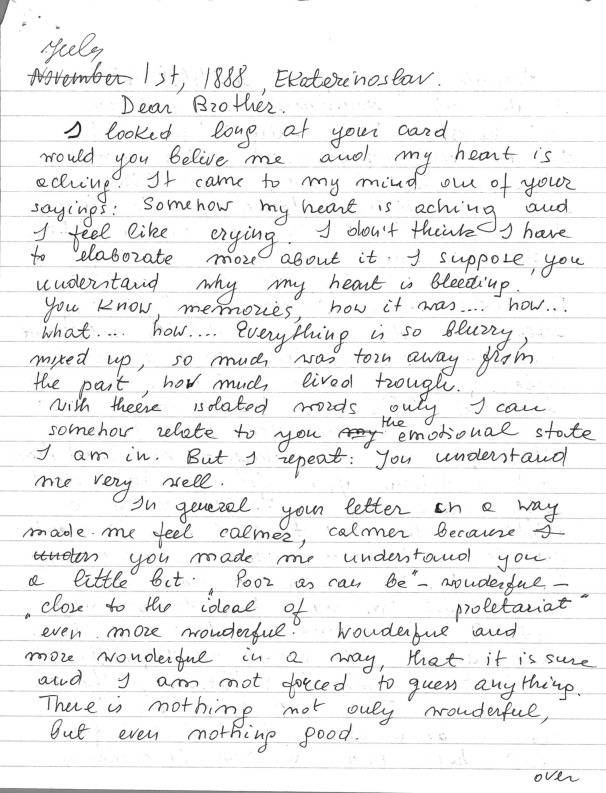 July
November 1st, 1888, Ekaterinoslav.
Dear Brother.
I looked long at your card
would you belive me and my heart is
aching. It came to my mind one of your
sayings: Somehow my heart is aching and
I feel like crying. I don't think I have
to elaborate more about it. I suppose, you
understand why my heart is bleeding.
You know, memories, how it was.... how...
what.... how.... Everything is so blurry,
mixed up, so much was torn away from
the past, how much lived trough.
With theese isolated words only I can
somehow relate to you my the emotional state
I am in. But I repeat: You understand
me very well.
In general your letter in a way
made me feel calmer, calmer because I
unders you made me understand you
a little bit. "Poor as can be" - wonderful -
"close to the ideal of proletariat"
even more wonderful. Wonderful and
more wonderful in a way, that it is sure
and I am not forced to guess anything.
There is nothing not only wonderful,
but even nothing good.
over